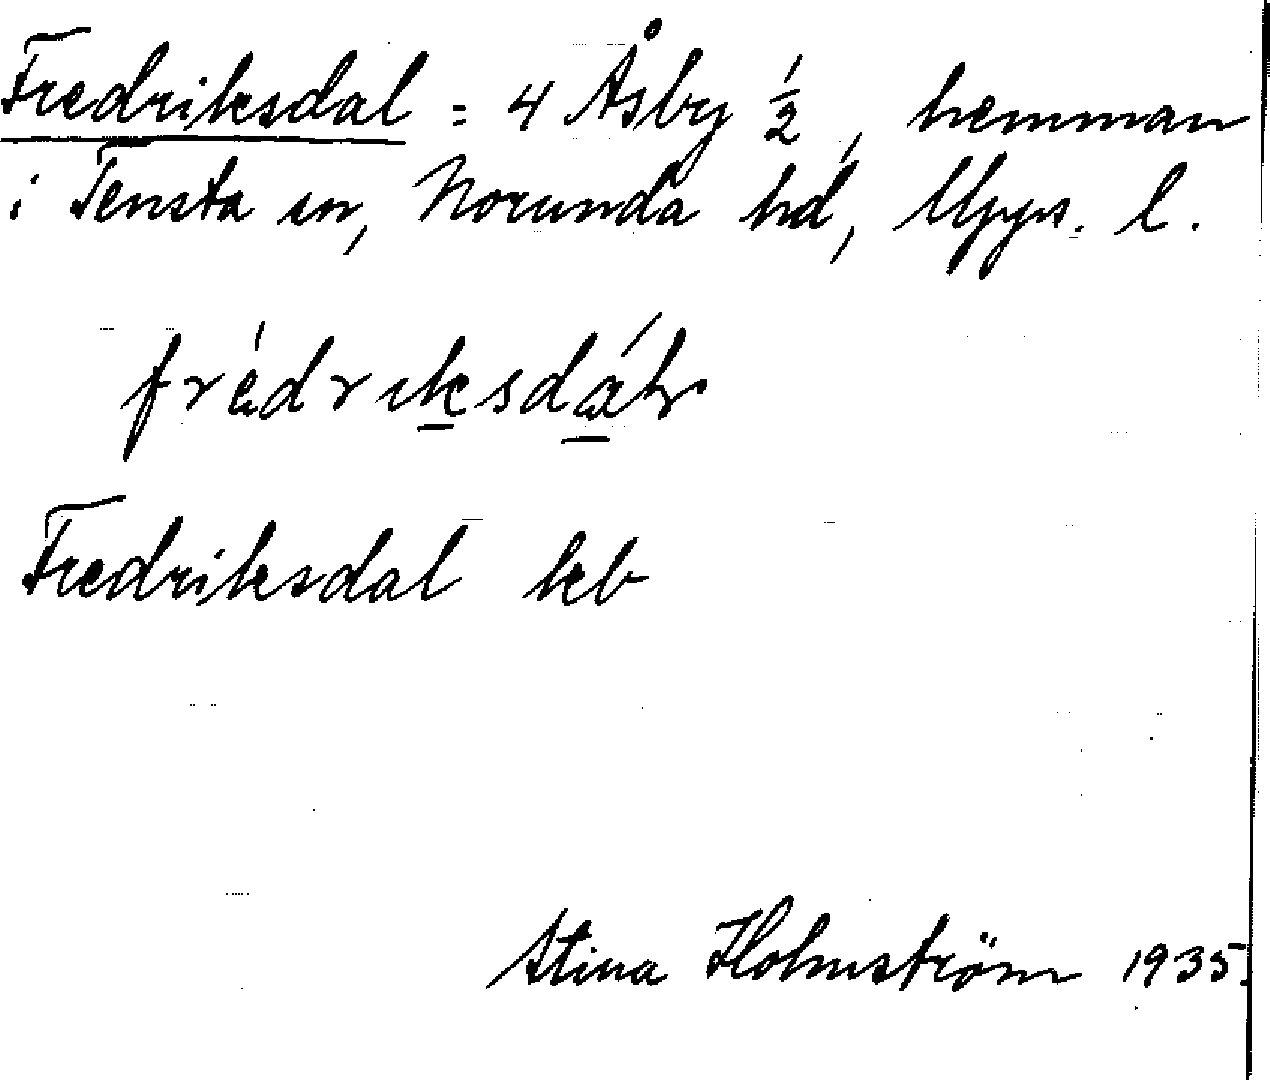 Fredriksdal = 4 Åsby ½, hemman
i Tensta sn, Norunda hd, Upps. l.
frédriksdál
Fredriksdal kb
Stina Holmström 1935.